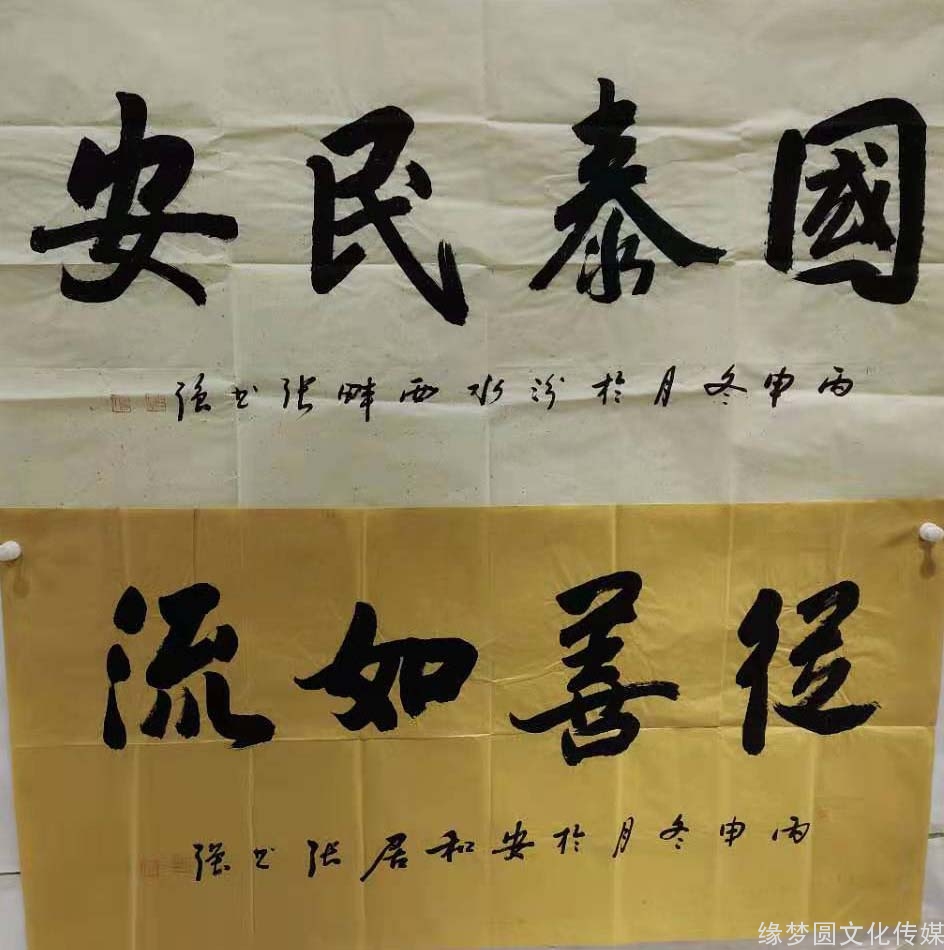 國泰民安
丙申冬月於汾水西畔张书强
從善如流
丙申冬月於安和居张书强
缘梦圆文化传媒